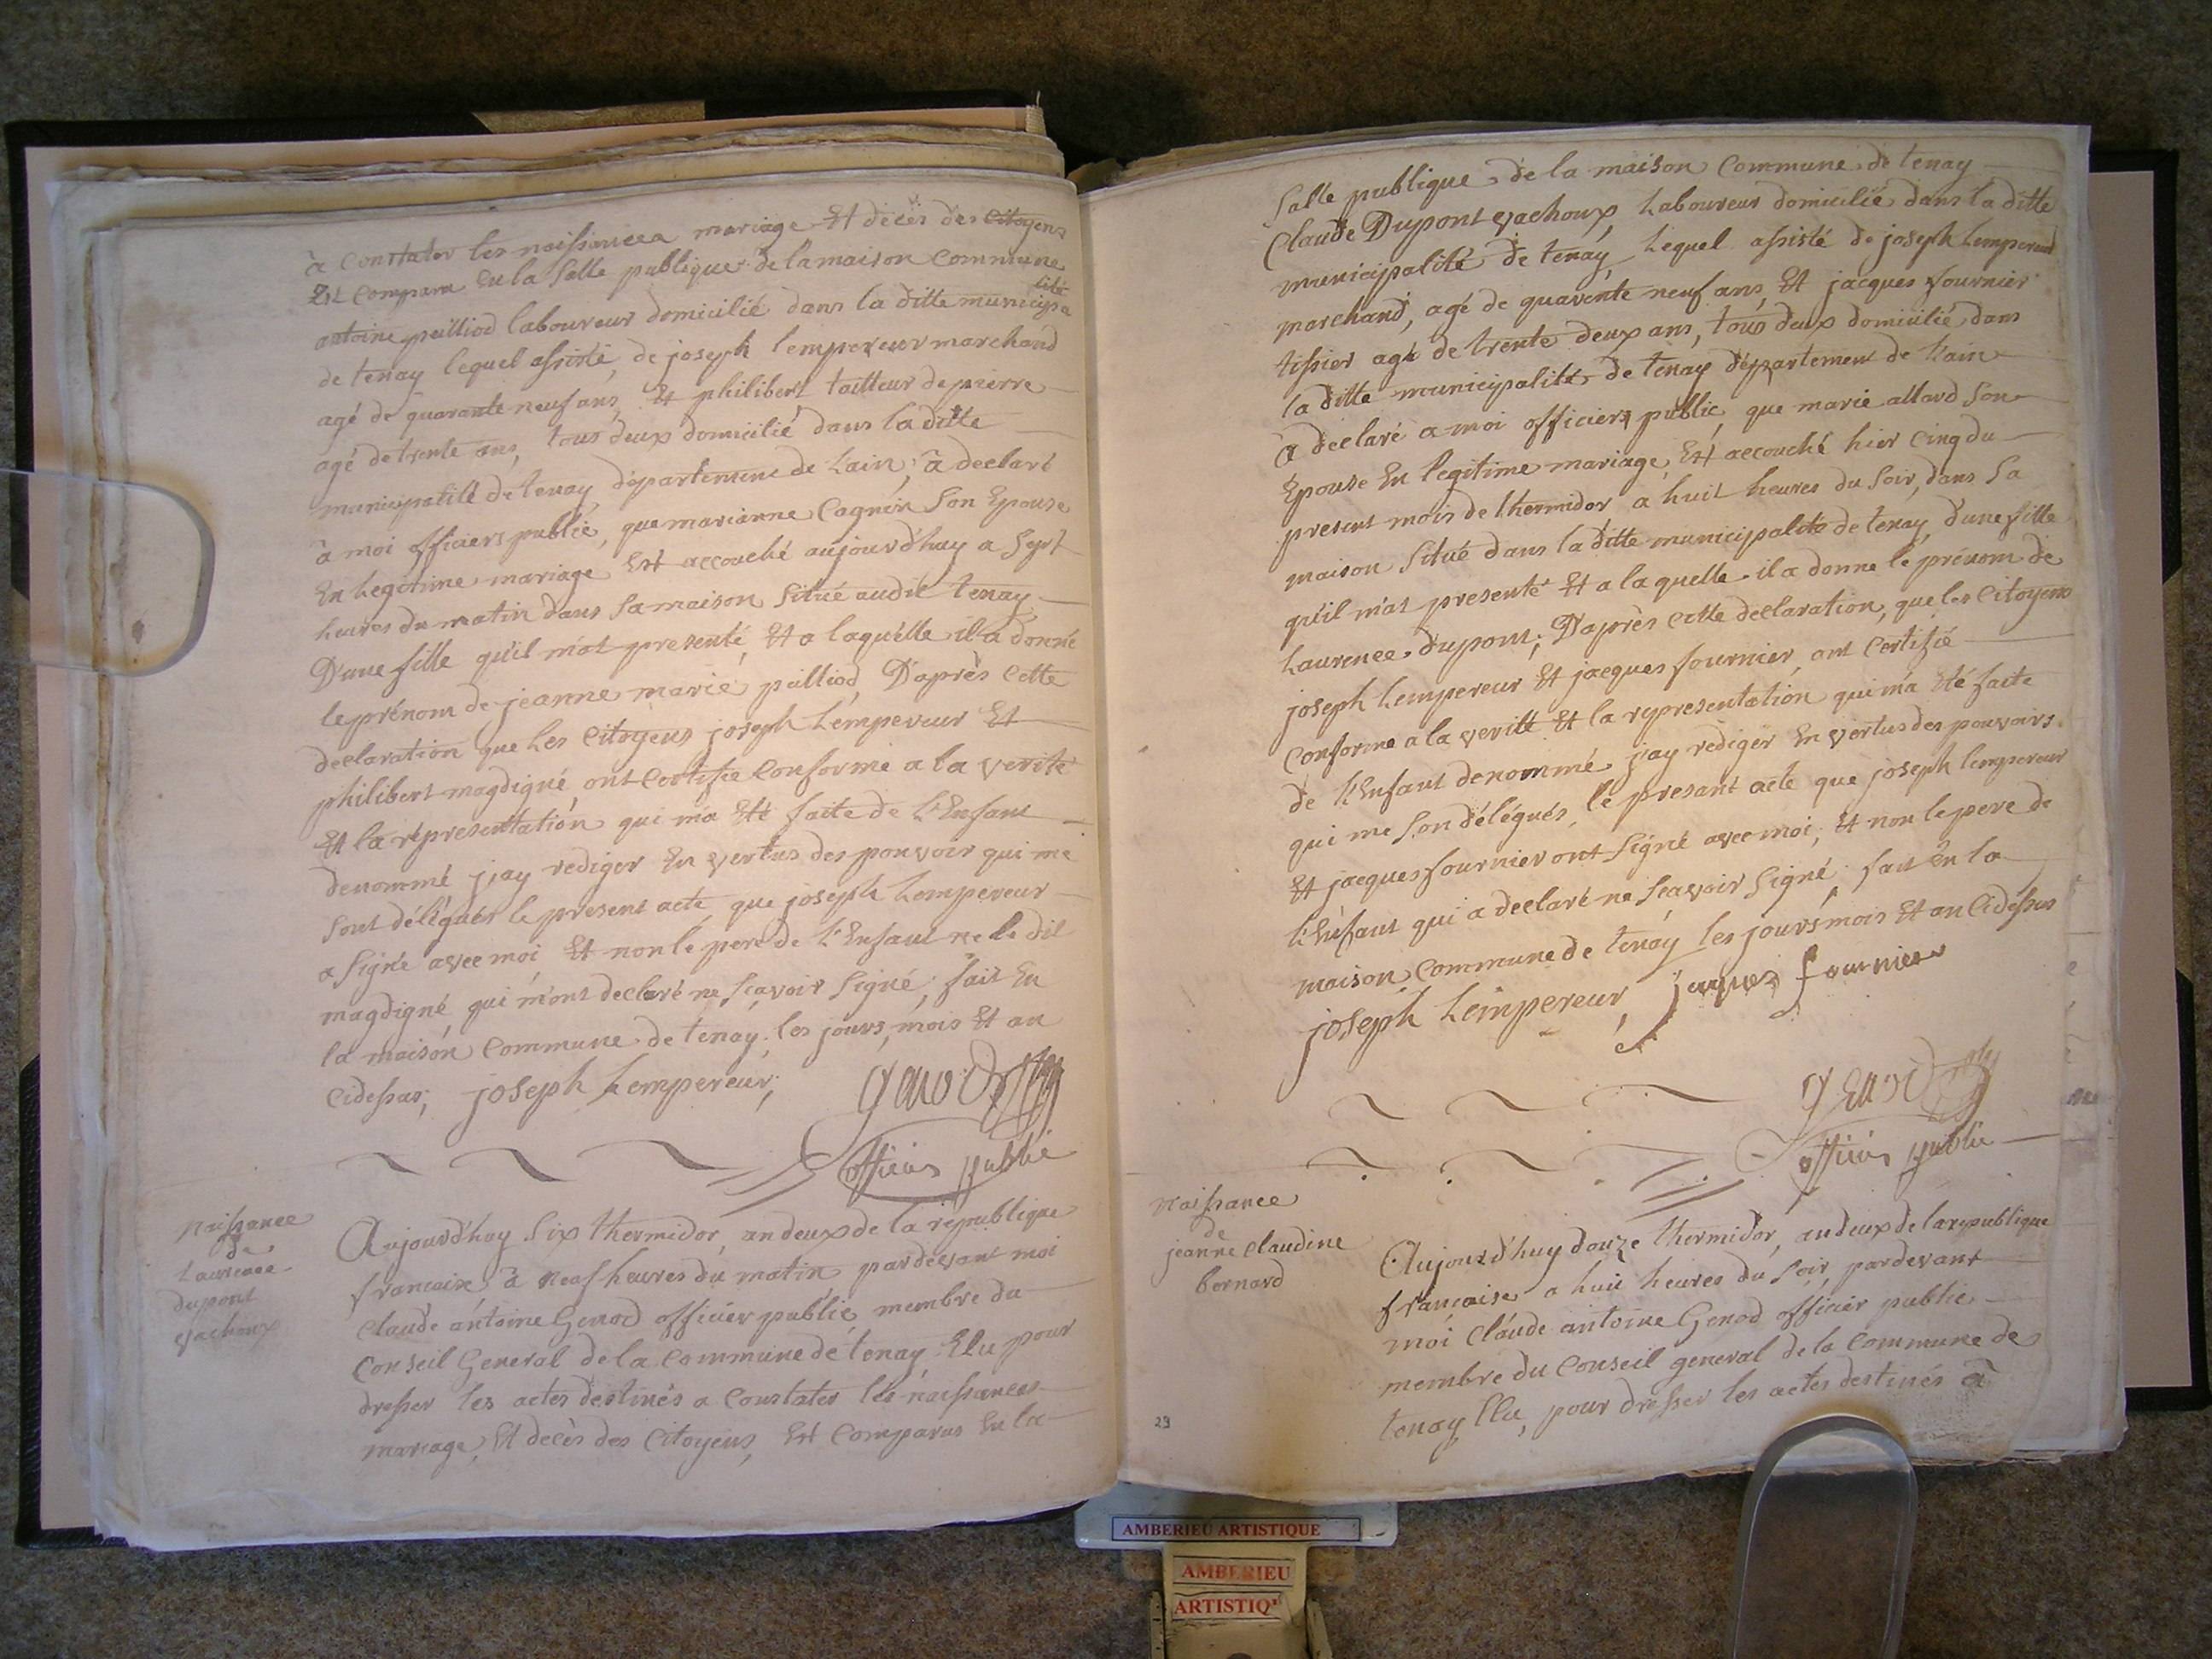 à Constater les naissances mariage Et décès des Citoyens
Est Comparu En la Salle publique de la maison Commune
antoine pailliod laboureur domicilié dans la ditte municipalité
de tenay lequel assisté, de joseph lempereur marchand
agé de quarante neuf ans, Et philibert tailleur de pierre
agé de trente ans, tous deux domicilié dans la ditte
municipalité de tenay, département de Lain, à declaré
à moi officiers public, que marianne Cagnin Son Epouse
En Legitime mariage Est accouché aujourd'huy a Sept
heures du matin dans Sa maison Situé audit tenay
D'une fille qu'il m'at presenté, Et a laquelle il a donné
le prénom de jeanne marie pailliod, D'après Cette
declaration que Les Citoyens joseph Lempereur Et
philibert magdigné, ont Certifié Conforme a la verité
Et la représentation qui m'a Eté faite de L'Enfant
denommé jay rediger En vertus des pouvoir qui me
Sont délégués le present acte que joseph Lempereur
a Signé avec moi Et non le pere de L'Enfant ne le dit
magdigné qui m'ont declaré ne Scavoir Signé; fait En
la maison Commune de tenay les jours, mois Et an
Cidessus; joseph Lempereur; Genod
officier public
Naissance
de
Laurence
dupont
vachoux
Aujourd'huy Six thermidor, an deux de la république
francaise à neuf heures du matin pardevant moi
Claude antoine Genod officier public, membre du
Conseil General de la Commune de tenay Elu pour
dresser les actes destinés a Constater les naissances
mariage, Et decès des Citoyens, Est Comparus En la
Salle publique de la maison Commune de tenay
Claude Dupont vachoux, Laboureur domicilié dans la ditte
municipalité de tenay, Lequel assisté de joseph Lempereur
marchand, agé de quarente neuf ans, Et jacques fournier
tissier agé de trente deux ans, tous deux domicilié dans
la ditte municipalité de tenay département de Lain
à declaré a moi officiers public, que marie allard Son
Epouse En legitime mariage, Est accouché hier Cinq du
present mois de thermidor a huit heures du Soir, dans Sa
maison Situé dans la ditte municipalité de tenay, d'une fille
qu'il m'at presenté Et a la quelle il a donne le prénom de
Laurence dupont; D'après Cette declaration, que les Citoyens
joseph Lempereur Et jacques fournier, ont Certifié
Conforme a la verité Et la representation qui m'a Eté faite
de L'Enfant denommé jay rediger En vertus des pouvoirs
qui me Son délégués, le presant acte que joseph lempereur
Et jacques fournier ont Signé avec moi, Et non le pere de
L'Enfant qui a declaré ne Scavoir Signé, fait En la
maison Commune de tenay les jours mois Et an Cidessus
joseph Lempereur, jaques fournier
Genod
officier public
Naissance
de
jeanne Claudine
bernard
Aujourd'huy douze thermidor, an deux de la republique
francaise a huit heures du Soir, pardevant
moi Claude antoine Genod officier public
membre du Conseil general de la Commune de
tenay Elu, pour dresser les actes destinés à
29
AMBERIEU ARTISTIQUE
AMBERIEU
ARTISTIQ'